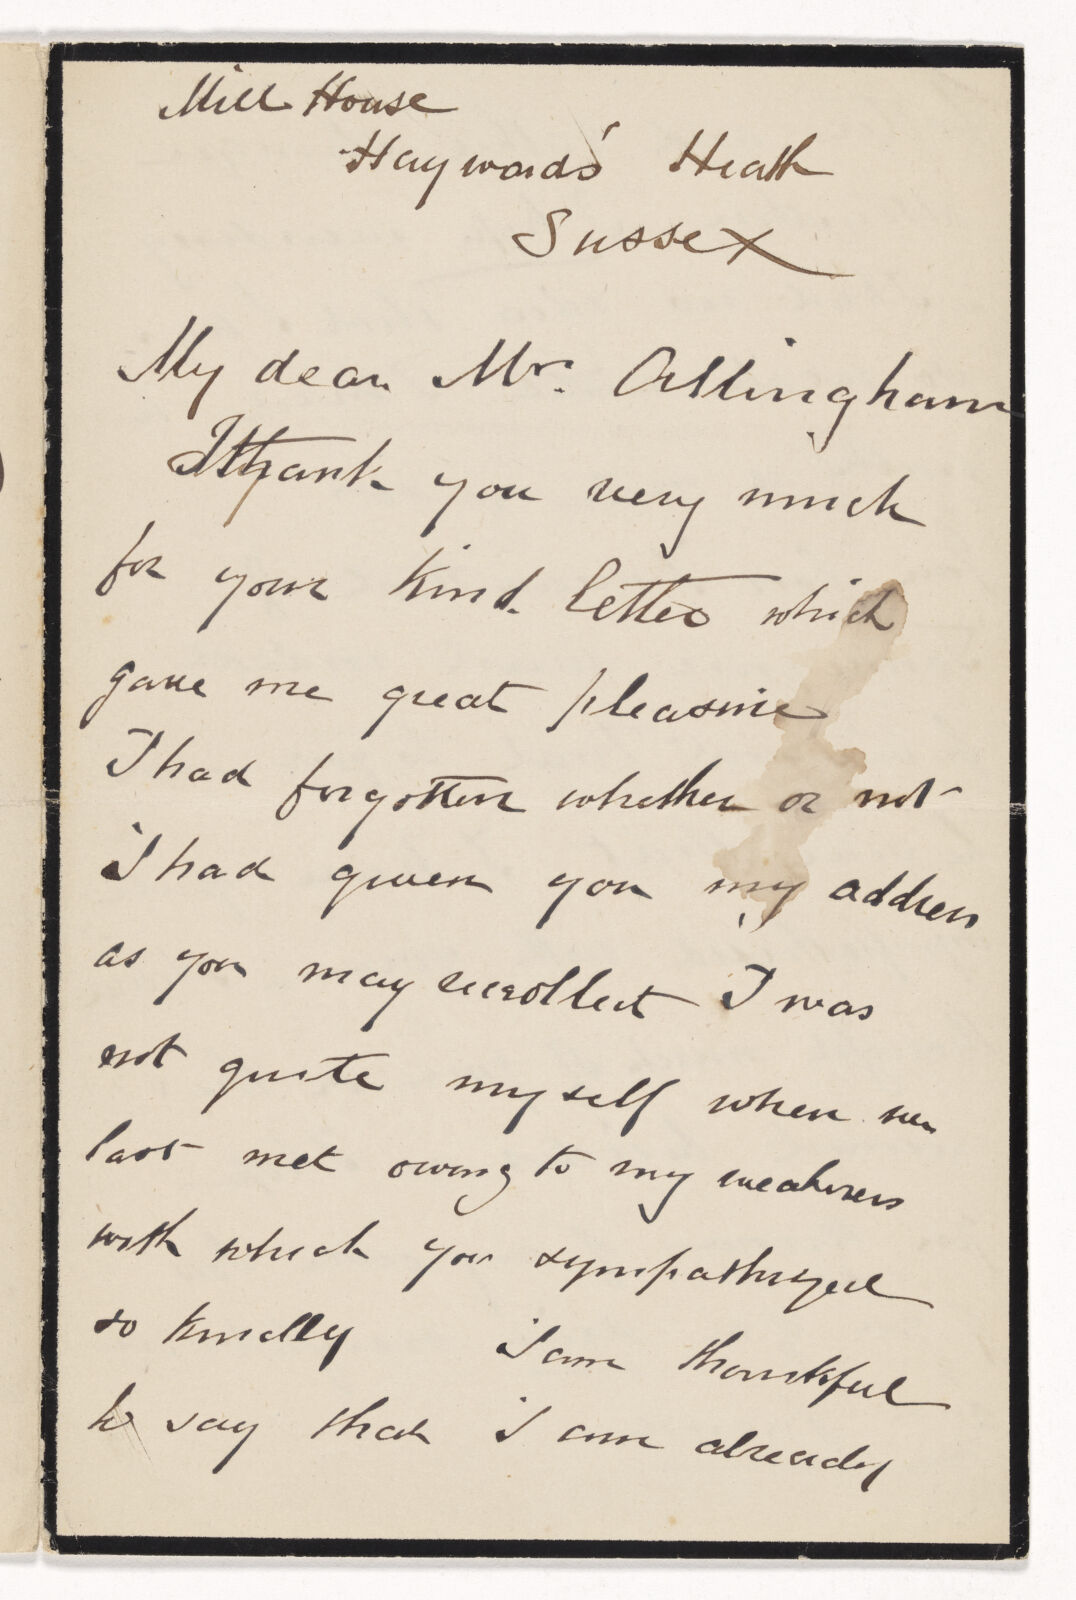 Mill House
Haywards' Heath
Sussex
My dear Mr. Allingham
I thank you very much
for your kind letter which
gave me great pleasure
I had forgotten whether or not
I had given you my address
as you may recollect I was
not quite myself when we
last met owing to my weakness
with which you sympathized
so kindly I am thankful
to say that I am already